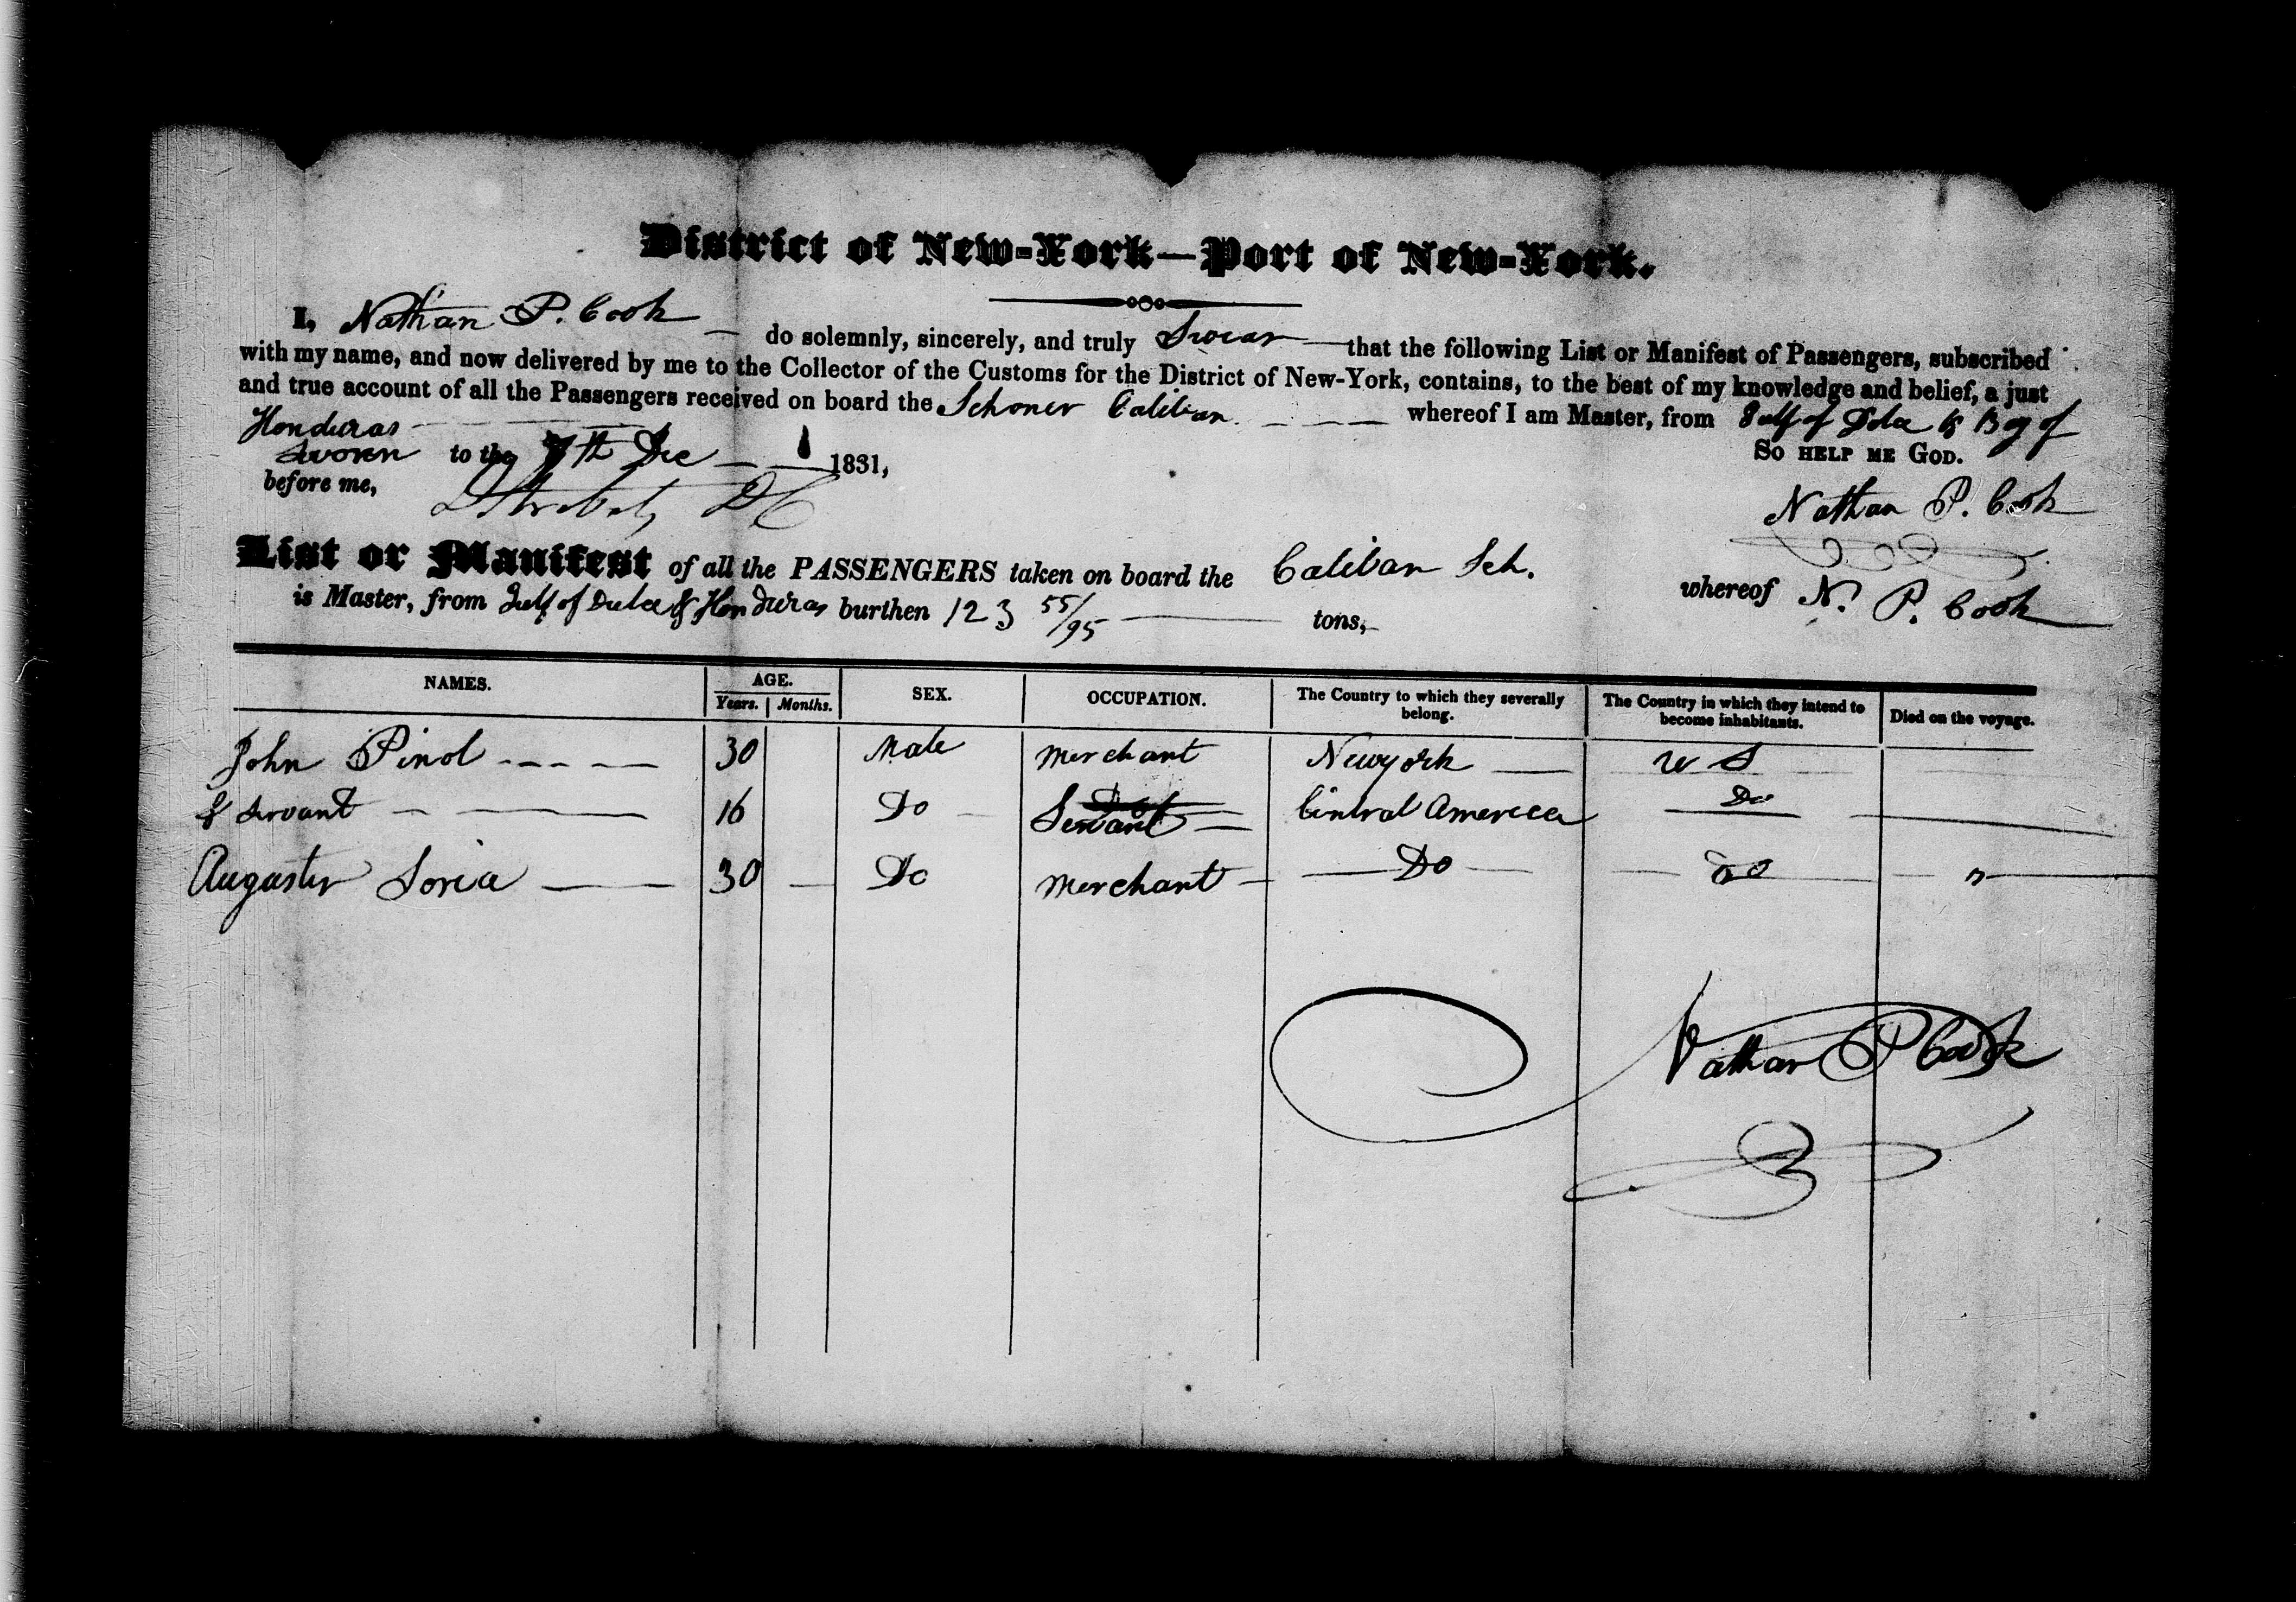 District of New-York—Port of New-York.
I, Nathan P. Cook — do solemnly, sincerely, and truly Swear — that the following List or Manifest of Passengers, subscribed
with my name, and now delivered by me to the Collector of the Customs for the District of New-York, contains, to the best of my knowledge and belief, a just
and true account of all the Passengers received on board the Schoner Caliban whereof I am Master, from Gulf of Dolce & Bay of
Honduras
SO HELP ME GOD.
Sworn to the 7th Dec 1831,
before me,
Nathan P. Cook
List or Manifest of all the PASSENGERS taken on board the Caliban Sch. whereof N. P. Cook
is Master, from Gulf of Dulce & Honduras burthen 123 55/95 tons,
NAMES. AGE. SEX. OCCUPATION. The Country to which they severally belong. The Country in which they intend to become inhabitants. Died on the voyage.
Years. Months.
John Pinol 30 Male Merchant Newyork U S
& Servant 16 Do Servant Central America Do
Augustus Soria 30 Do Merchant Do Do "
Nathan P Cook